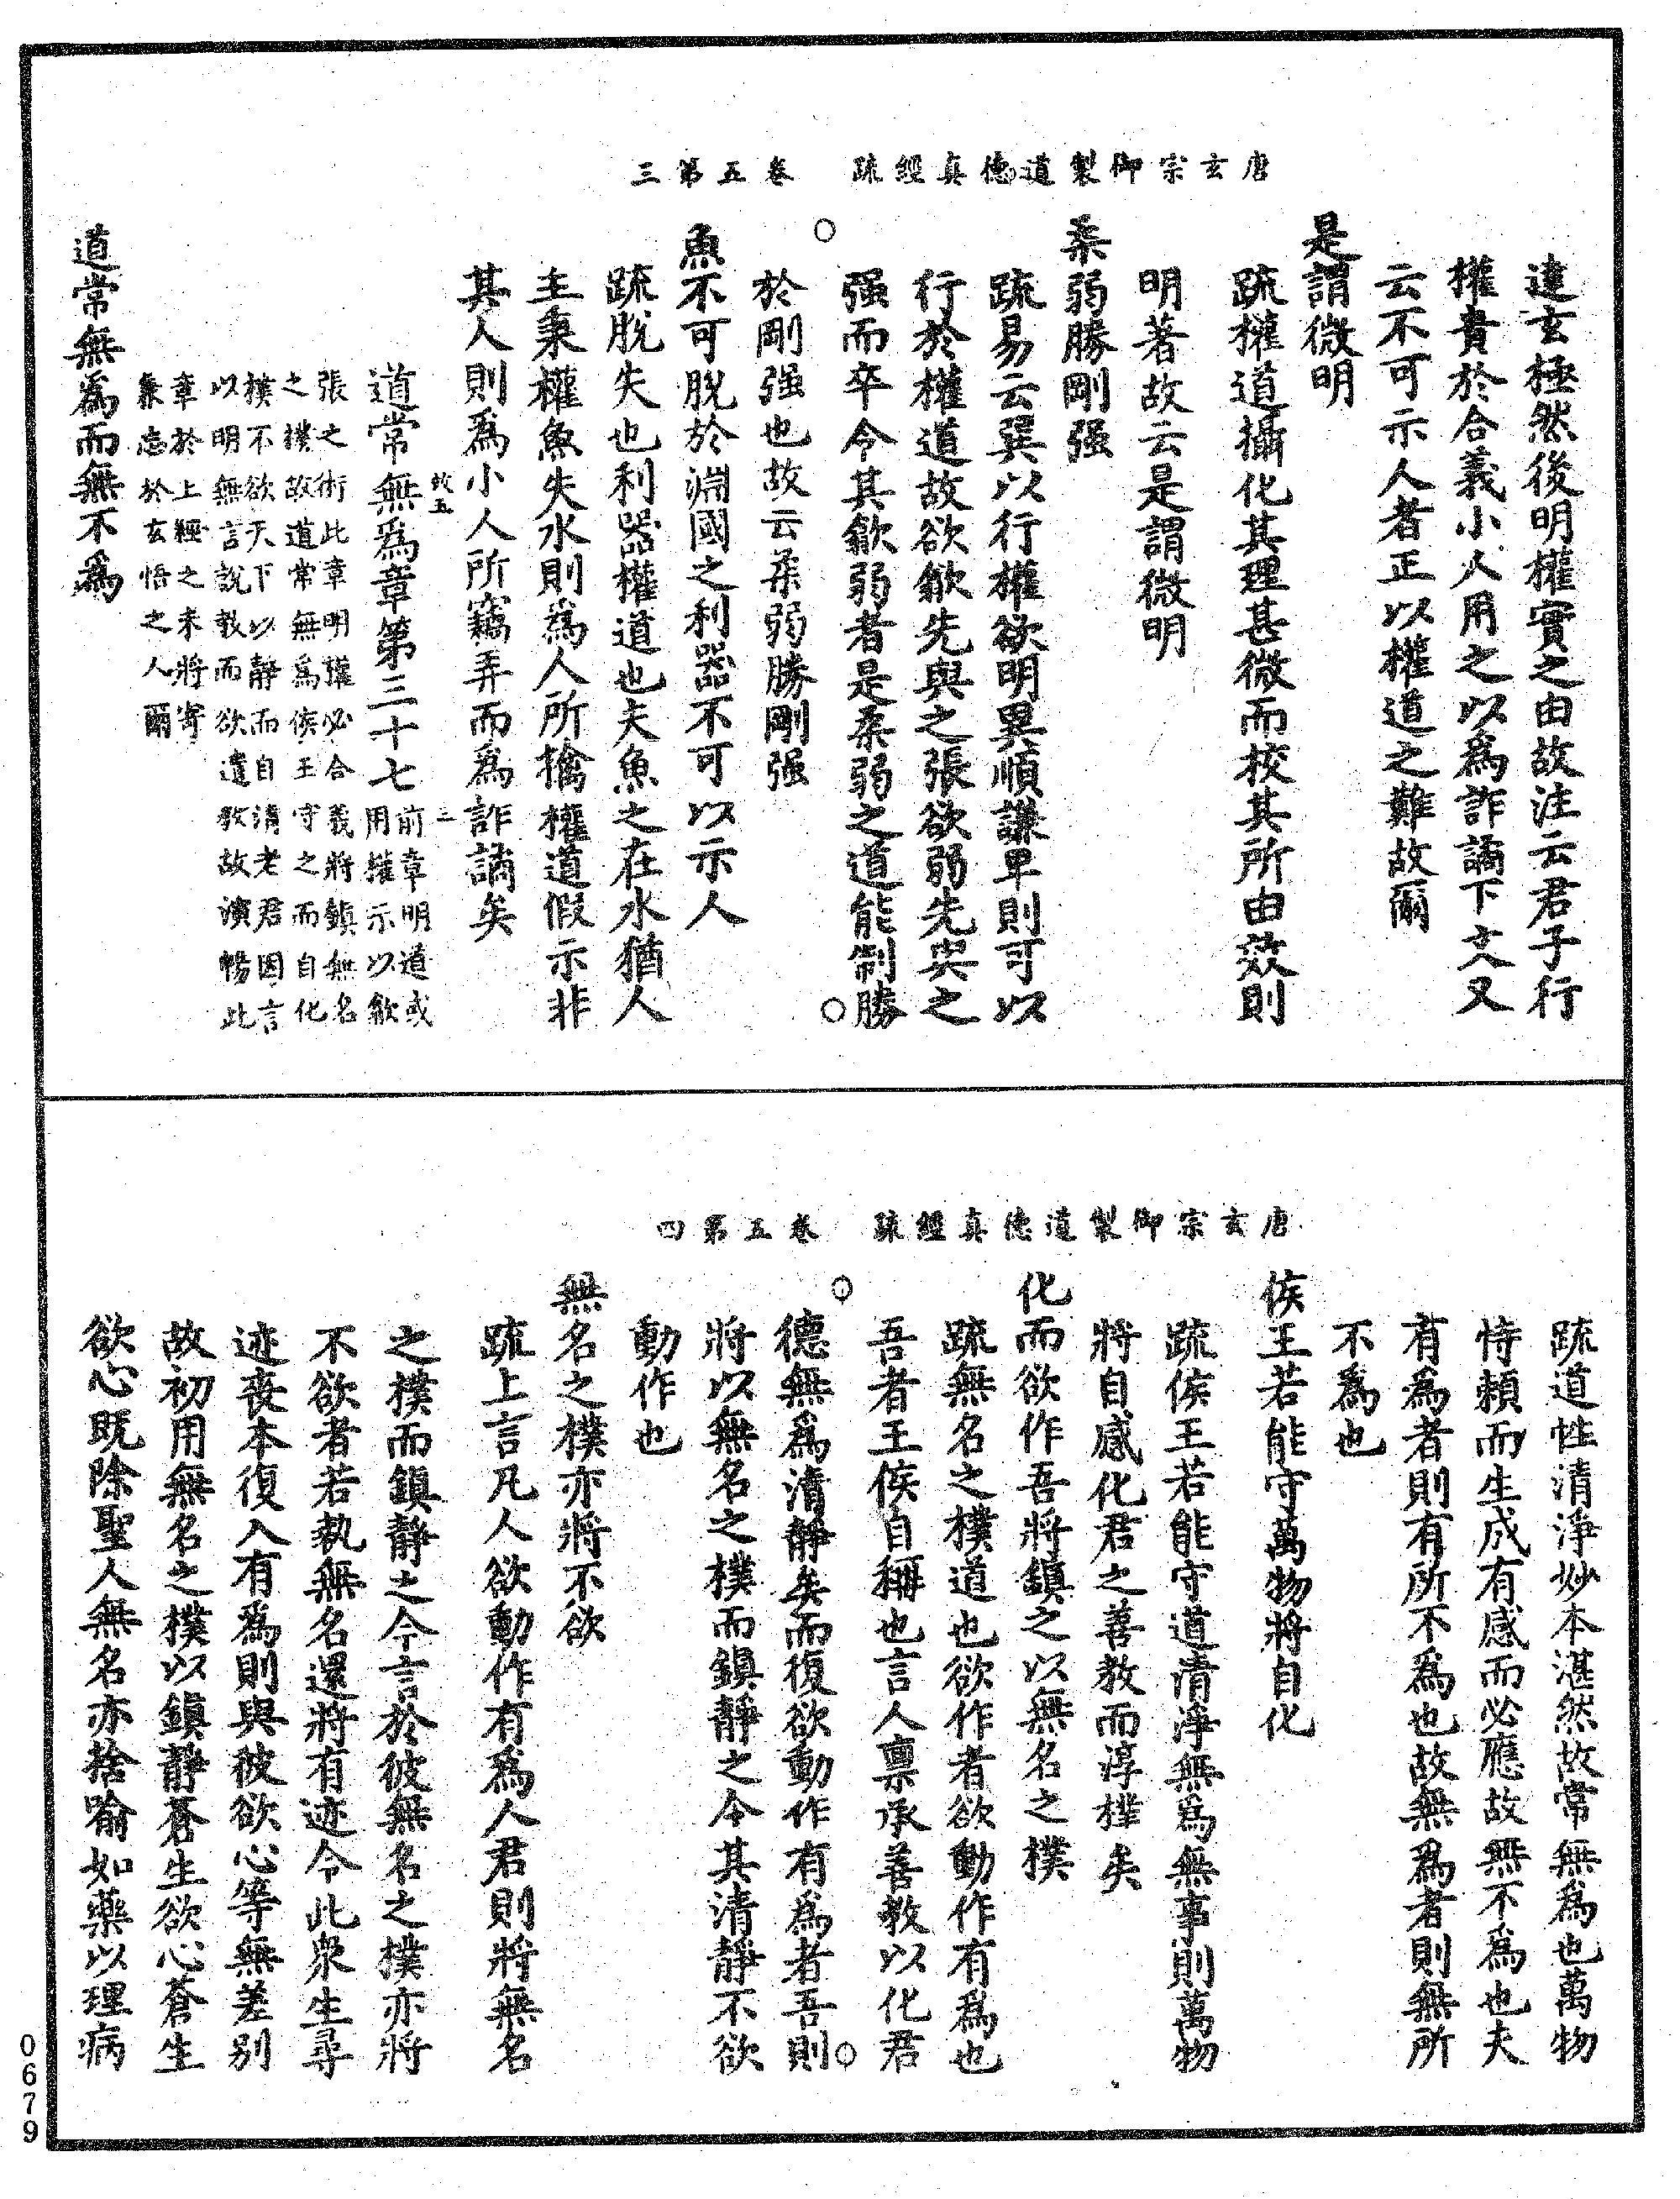 唐玄宗御製道德真經疏　卷五第三
達玄極然後明權實之由故注云君子行
權貴於合義小人用之以爲詐譎下文又
云不可示人者正以權道之難故爾
是謂微明
疏權道攝化其理甚微而校其所由效則
明著故云是謂微明
柔弱勝剛强
疏易云巽以行權欲明巽順謙卑則可以
行於權道故欲歙先與之張欲弱先與之
强而卒令其歙弱者是柔弱之道能制勝
於剛强也故云柔弱勝剛强
魚不可脫於淵國之利器不可以示人
疏脫失也利器權道也夫魚之在水猶人
主秉權魚失水則爲人所擒權道假示非
其人則爲小人所竊弄而爲詐譎矣
道常無爲章第三十七
前章明道或
用權示以歙
張之術此章明權必合義將鎮無名
之樸故道常無爲侯王守之而自化
樸不欲天下以靜而自清老君因言
以明無言說教而欲遣教故演暢此
章於上經之末將寄
兼忘於玄悟之人爾
道常無爲而無不爲
唐玄宗御製道德真經疏　卷五第四
疏道性清淨妙本湛然故常無爲也萬物
恃賴而生成有感而必應故無不爲也夫
有爲者則有所不爲也故無爲者則無所
不爲也
侯王若能守萬物將自化
疏侯王若能守道清淨無爲無事則萬物
將自感化君之善教而淳樸矣
化而欲作吾將鎮之以無名之樸
疏無名之樸道也欲作者欲動作有爲也
吾者王侯自稱也言人禀承善教以化君
德無爲清靜矣而復欲動作有爲者吾則
將以無名之樸而鎮靜之令其清靜不欲
動作也
無名之樸亦將不欲
疏上言凡人欲動作有爲人君則將無名
之樸而鎮靜之今言於彼無名之樸亦將
不欲者若執無名還將有迹令此衆生尋
迹喪本復入有爲則與彼欲心等無差别
故初用無名之樸以鎮靜蒼生欲心蒼生
欲心既除聖人無名亦捨喻如藥以理病
0679